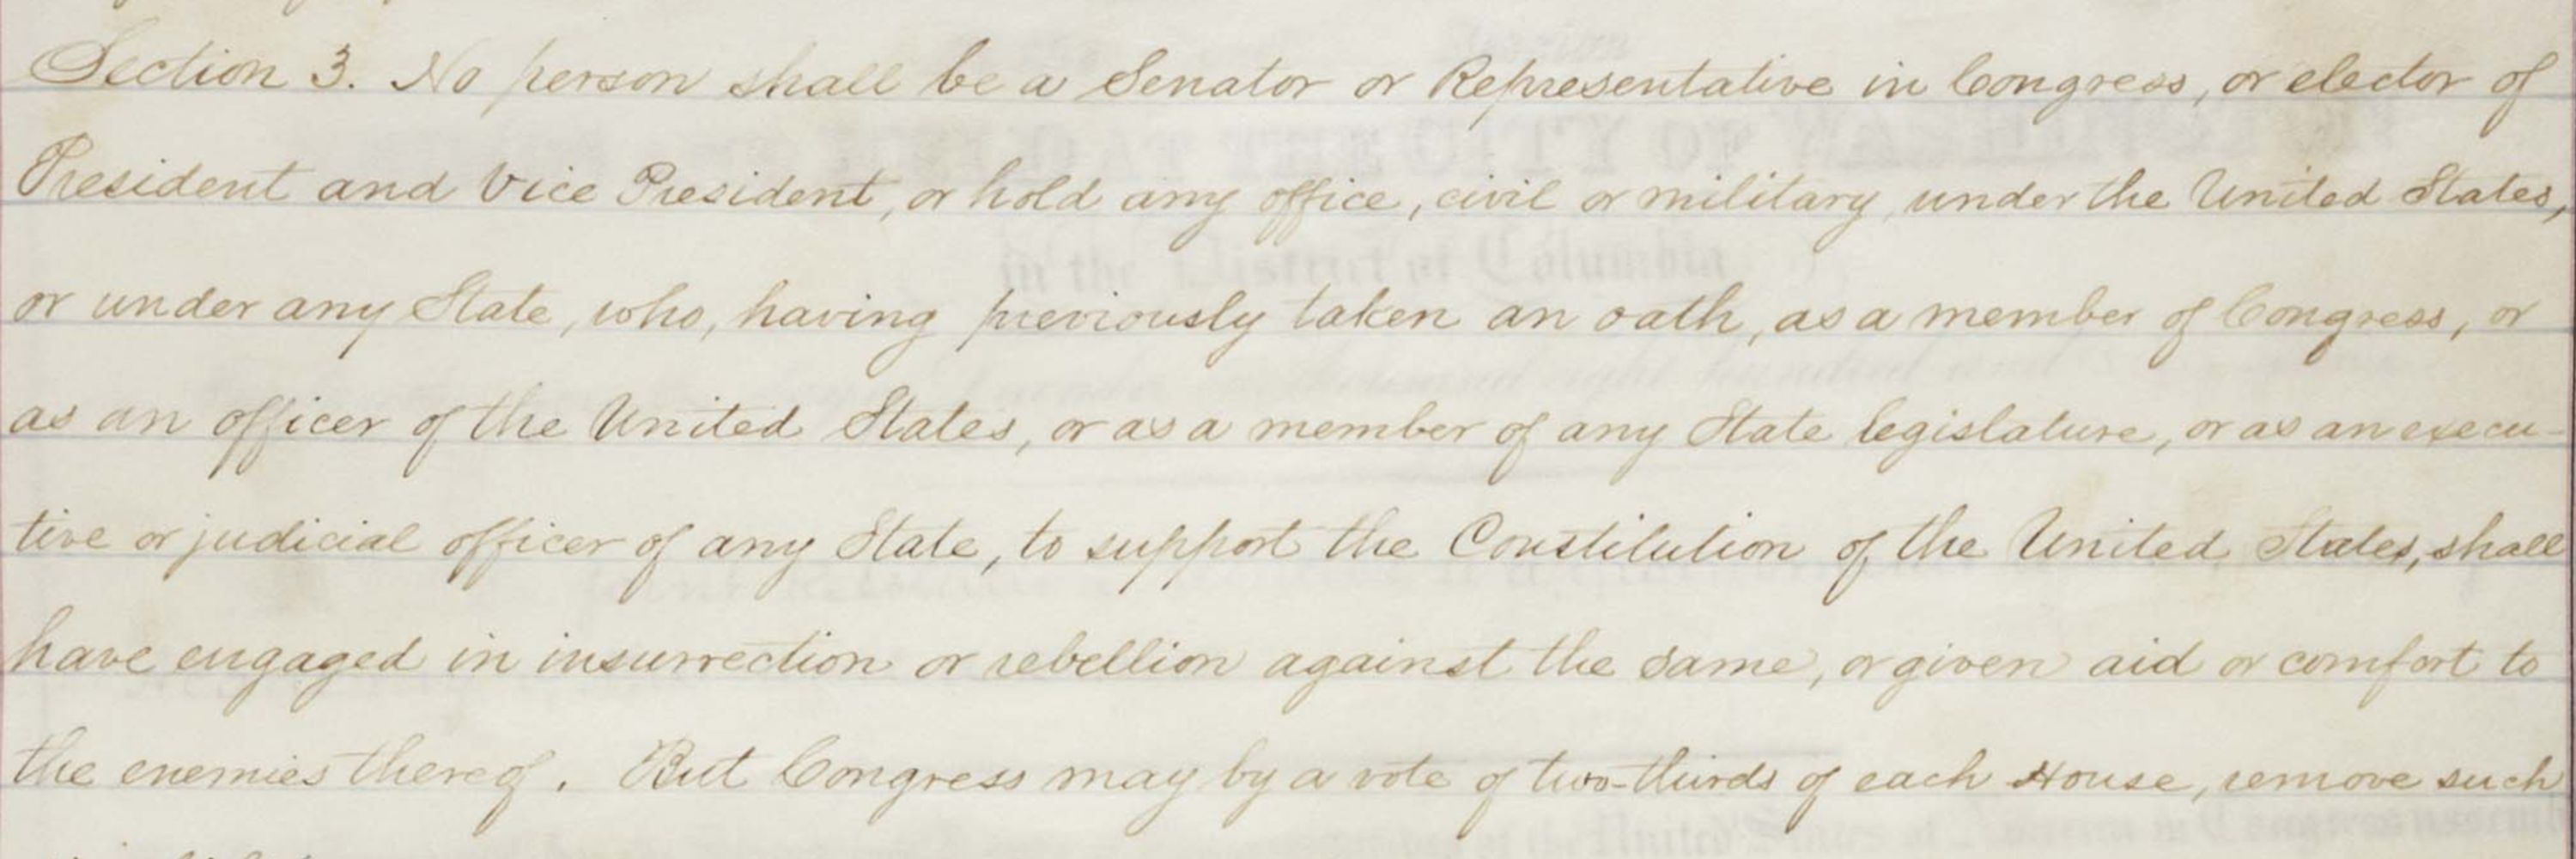 Section 3. No person shall be a Senator or Representative in Congress, or elector of
President and Vice President, or hold any office, civil or military, under the United States,
or under any State, who, having previously taken an oath, as a member of Congress, or
as an officer of the United States, or as a member of any State legislature, or as an execu-
tive or judicial officer of any State, to support the Constitution of the United States, shall
have engaged in insurrection or rebellion against the same, or given aid or comfort to
the enemies thereof. But Congress may by a vote of two-thirds of each House, remove such